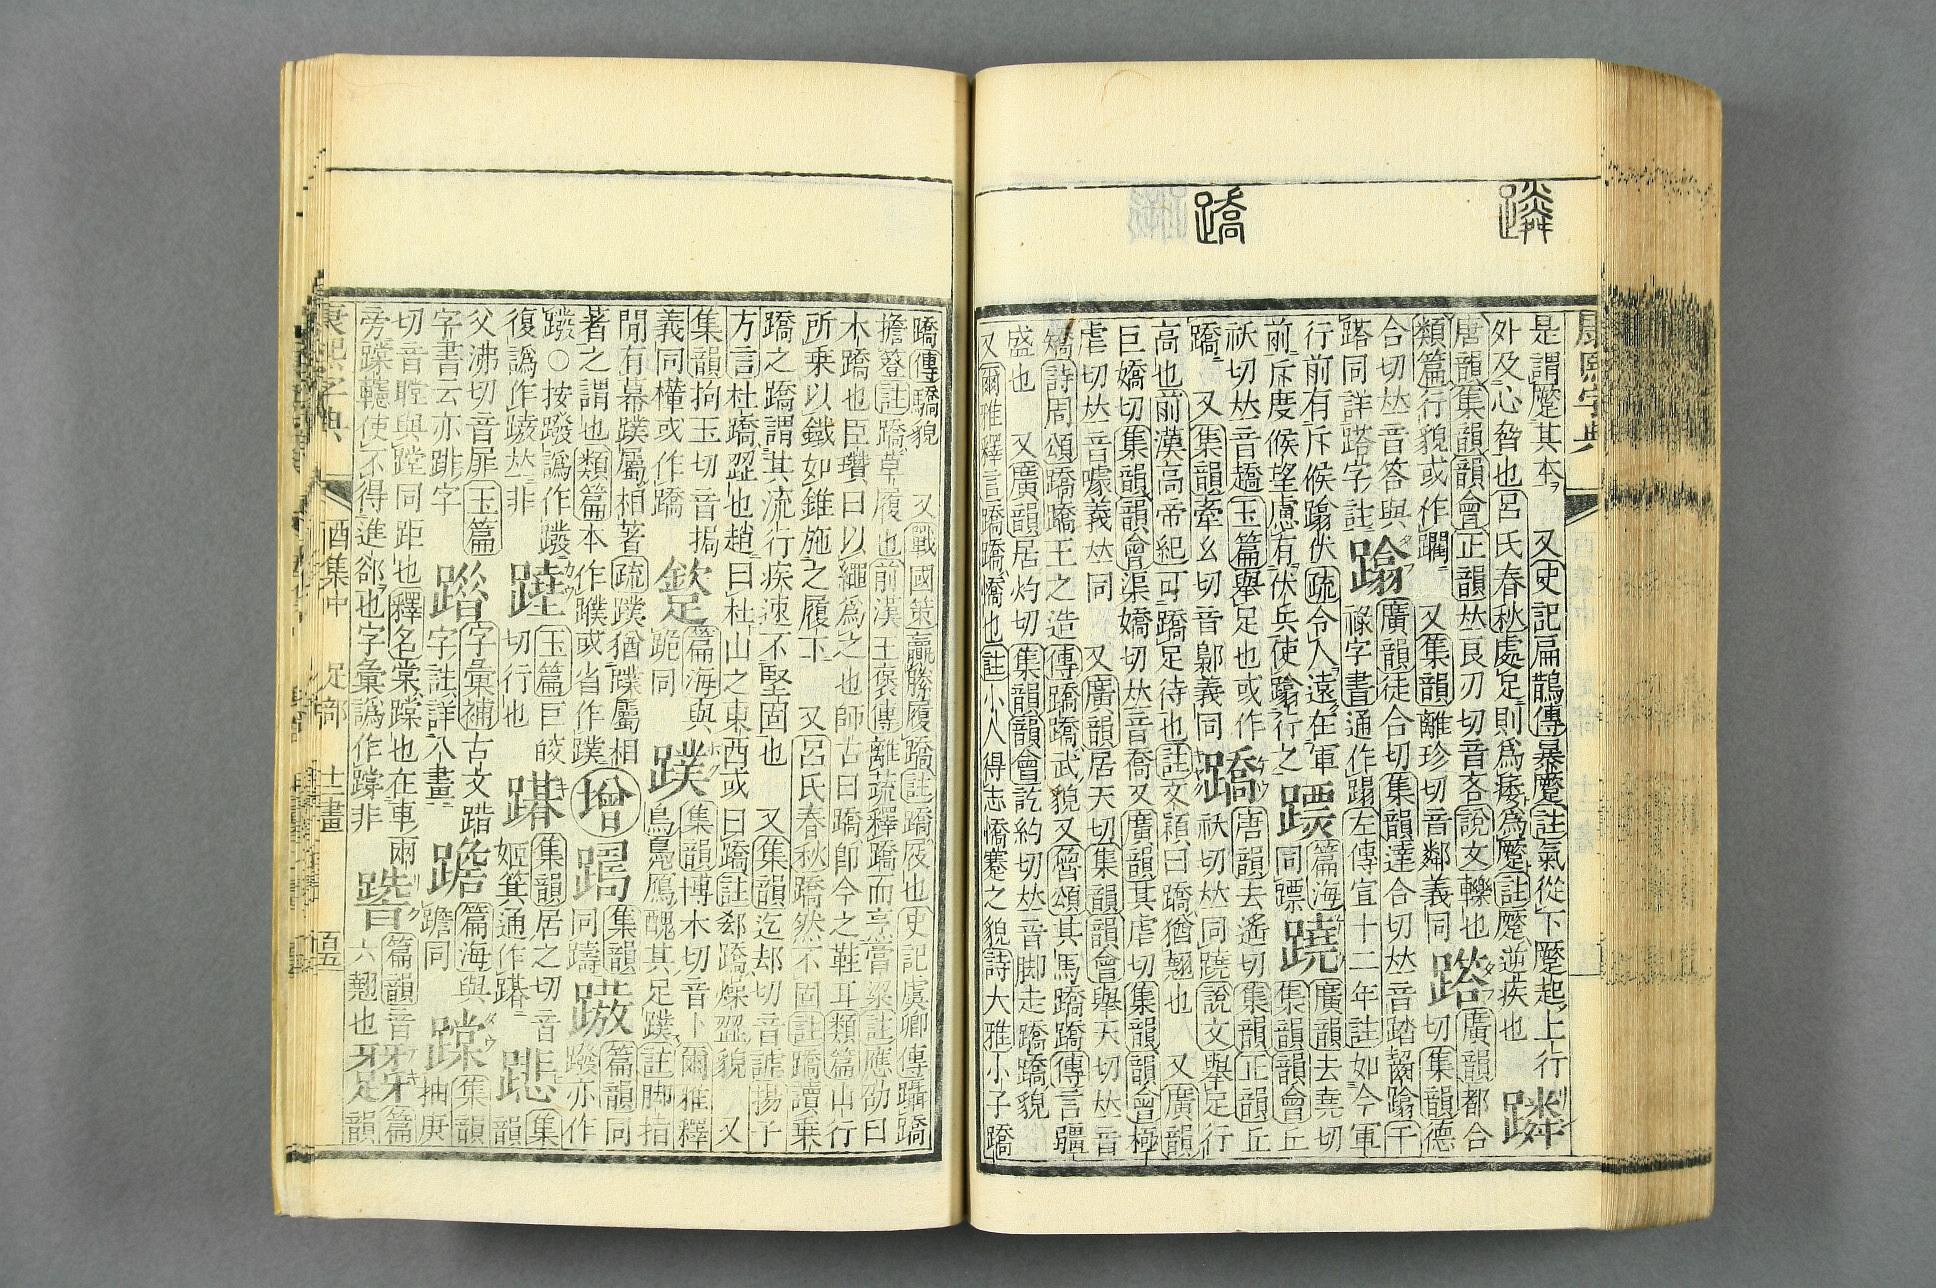 康熙字典
蹸
蹻
是謂蹷其本 又史記扁鵲傳暴蹷註氣從下蹷起上行
外及心脅也呂氏春秋處足則為痿為蹷註蹷逆疾也
蹸
唐韻集韻韻會正韻𠀤良刃切音吝說文轢也
類篇行貌或作躙 又集韻離珍切音鄰義同
廣韻都合
切集韻德
合切𠀤音答與
同詳字註
蹹
廣韻徒合切集韻達合切𠀤音踏齧蹹干
祿字書通作蹋左傳宣十二年註如今軍
行前有斥候蹹伏疏令人遠在軍
前斥度候望慮有伏兵使蹹行之
篇海
同
蹺
廣韻去堯切
集韻韻會丘
祅切𠀤音趫玉篇舉足也或作
蹻 又集韻牽幺切音鄡義同
蹻
唐韻去遙切集韻正韻丘
祅切𠀤同蹺說文舉足行
高也前漢高帝紀可蹻足待也註文穎曰蹻猶翹也 又廣韻
巨嬌切集韻韻會渠嬌切𠀤音喬又廣韻其虐切集韻韻會極
虐切𠀤音噱義𠀤同 又廣韻居夭切集韻韻會舉夭切𠀤音
矯詩周頌蹻蹻王之造傳蹻蹻武貌又魯頌其馬蹻蹻傳言彊
盛也 又廣韻居灼切集韻韻會訖約切𠀤音脚走蹻蹻貌
又爾雅釋言蹻蹻憍也註小人得志憍蹇之貌詩大雅小子蹻
蹻傳驕貌 又戰國策羸縢履蹻註蹻屐也史記虞卿傳躡蹻
擔簦註蹻草履也前漢王褒傳離蔬釋蹻而享膏粱註應劭曰
木蹻也臣瓚曰以繩為之也師古曰蹻卽今之鞋耳類篇山行
所乗以鐵如錐施之履下 又呂氏春秋蹻然不固註蹻讀乗
蹻之蹻謂其流行疾速不堅固也 又集韻迄却切音謔揚子
方言杜蹻歰也趙曰杜山之東西或曰蹻註郄蹻燥歰貌 又
集韻拘玉切音挶
義同檋或作蹻
篇海與
跪同
蹼
集韻博木切音卜爾雅釋
鳥鳧鴈醜其足蹼註脚指
閒有幕蹼屬相著疏蹼猶蹼屬相
著之謂也類篇本作或省作蹼
增
集韻
同躊
篇韻同
蹳亦作
○按蹳譌作
復譌作𠀤非
玉篇巨皎
切行也
集韻居之切音
姬箕通作
集韻
父沸切音屝玉篇
字書云亦字
字彙補古文踖
字註詳八畫
篇海與
蹌同
集韻
抽庚
切音瞠與蹚同距也釋名棠也在車兩
旁轙使不得進郤也字彙譌作非
篇韻音
翹也
篇
韻
康熙字典 酉集中 足部 十二畫 五五